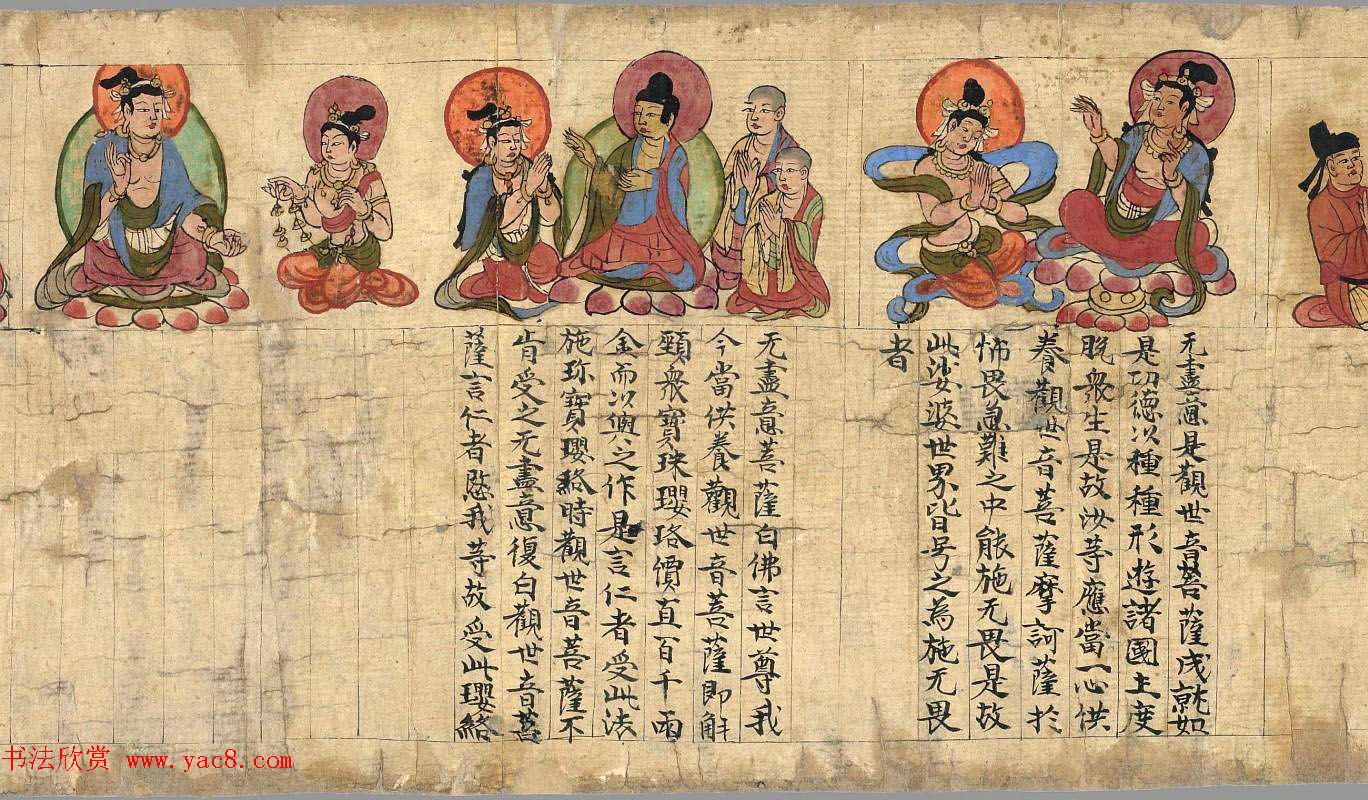 无盡意是觀世音菩薩成就如
是功德以種種形遊諸國土度
脫衆生是故汝等應當一心供
養觀世音菩薩摩訶薩於
怖畏急難之中能施无畏是故
此娑婆世界皆号之為施无畏
者
无盡意菩薩白佛言世尊我
今當供養觀世音菩薩即解
頸衆寶珠瓔珞價直百千兩
金而以與之作是言仁者受此法
施珎寶瓔珞時觀世音菩薩不
肯受之无盡意復白觀世音菩
薩言仁者愍我等故受此瓔珞
书法欣赏 www.yac8.com